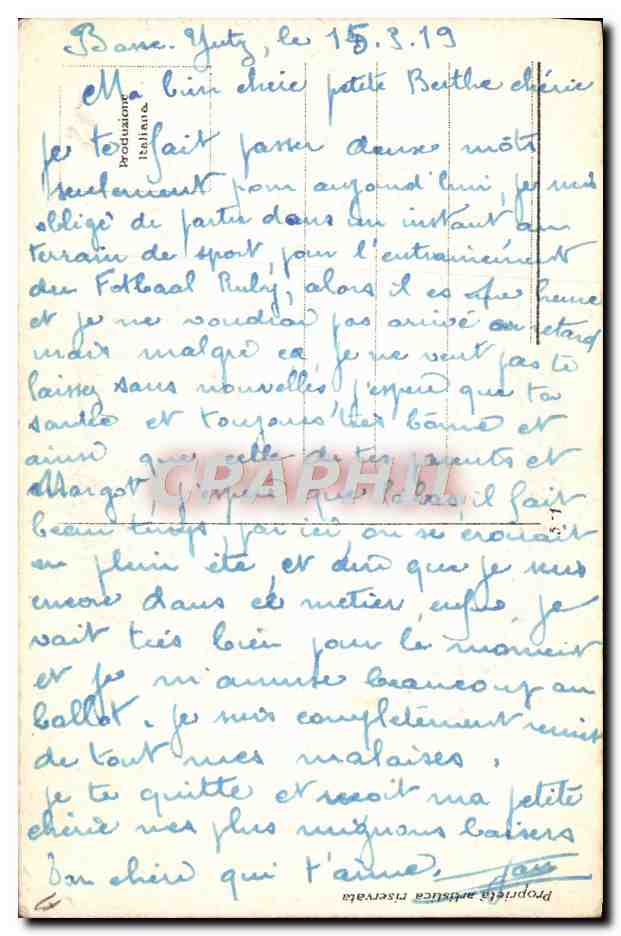 Basse-Yutz, le 15.3.19
Ma bien cherie petite Berthe chérie
Produzione
Italiana
je te fait passer deux môts
seulement pour aujourd'hui, je suis
obligé de partir dans un instant au
terrain de sport, pour l'entrainement
du Fotbaal Ruby, alors il es heure
et je ne voudrai pas arrivé en retard
mais malgré ca je ne veut pas te
laissez sans nouvelles, j'espère que ta
santée et toujours très bonne et
ainsi que celle de tes parents et
Margot, j'espère que labas, il fait
CRAPHIL
beau temps, par ici on se croirait
5-1
en plein été, et dire que je suis
encore dans ce métier, enfin je
vait très bien pour le moment
et je m'amuse beaucoup au
ballot. Je suis complètement remis
de tout mes malaises.
je te quitte et reçoit ma petite
chérie mes plus mignons baisers
Ton chéri qui t'aime. Jan
Proprietà artistica riservata